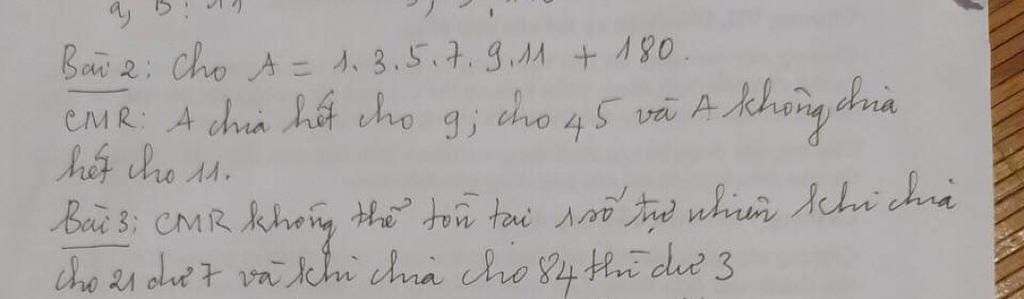 a, B:
Bài 2: Cho A = 1.3.5.7.9.11 + 180.
CMR: A chia hết cho 9; cho 45 và A không chia
hết cho 11.
Bài 3: CMR không thể tồn tại 1 số tự nhiên khi chia
cho 21 dư 7 và khi chia cho 84 thì dư 3